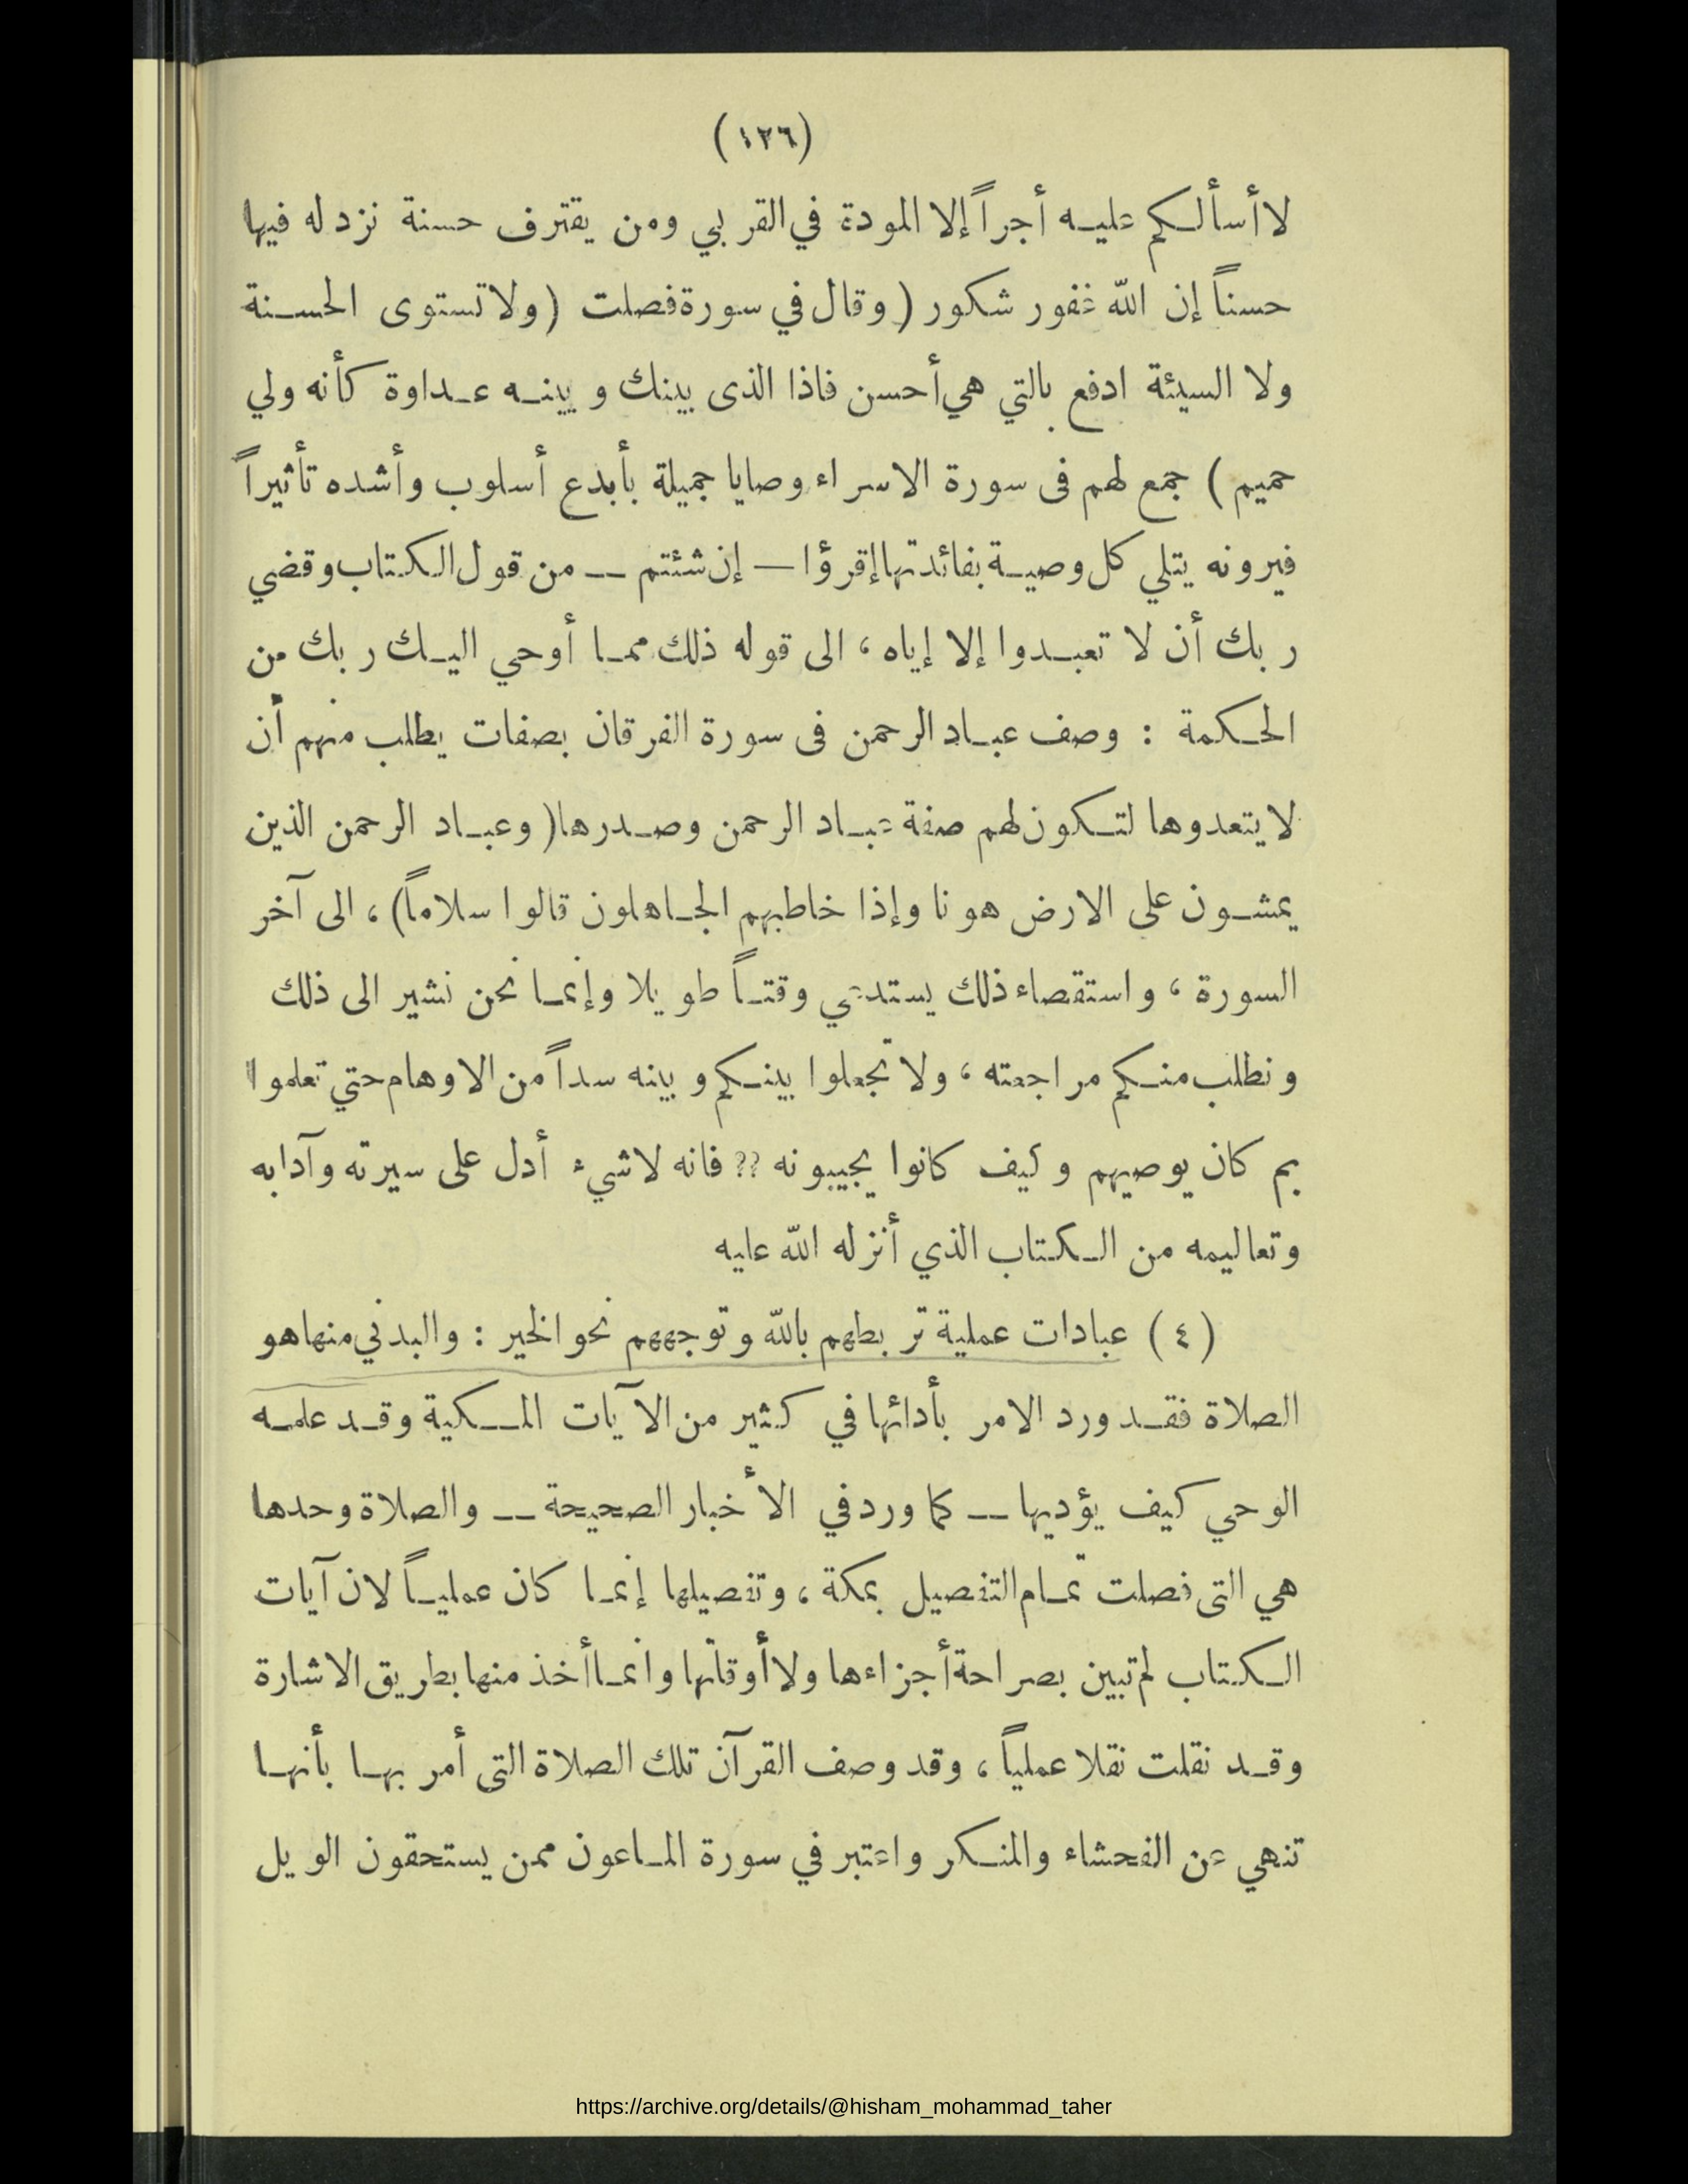 (١٢٦)
لا أسألكم عليه أجراً إلا المودة في القربي ومن يقترف حسنة نزد له فيها
حسناً إن الله غفور شكور ) وقال في سورة فصلت ( ولا تستوى الحسنة
ولا السيئة ادفع بالتي هي أحسن فاذا الذى بينك وبينه عداوة كأنه ولي
حميم ) جمع لهم فى سورة الاسراء وصايا جميلة بأبدع أسلوب وأشده تأثيراً
فيرونه يتلي كل وصية بفائدتها إقرؤا — إن شئتم — من قول الكتاب وقضي
ربك أن لا تعبدوا إلا إياه ، الى قوله ذلك مما أوحي اليك ربك من
الحكمة : وصف عباد الرحمن فى سورة الفرقان بصفات يطلب منهم أن
لا يتعدوها لتكون لهم صفة عباد الرحمن وصدرها ( وعباد الرحمن الذين
يمشون على الارض هونا وإذا خاطبهم الجاهلون قالوا سلاماً ) ، الى آخر
السورة ، واستقصاء ذلك يستدعي وقتاً طويلا وإنما نحن نشير الى ذلك
ونطلب منكم مراجعته ، ولا تجعلوا بينكم وبينه سداً من الاوهام حتي تعلموا
بم كان يوصيهم وكيف كانوا يجيبونه ؟؟ فانه لا شيء أدل على سيرته وآدابه
وتعاليمه من الكتاب الذي أنزله الله عليه
( ٤ ) عبادات عملية تربطهم بالله وتوجههم نحو الخير : والبدني منها هو
الصلاة فقد ورد الامر بأدائها في كثير من الآيات المكية وقد علمه
الوحي كيف يؤديها — كما ورد في الأخبار الصحيحة — والصلاة وحدها
هي التى فصلت تمام التفصيل بمكة ، وتفصيلها إنما كان عملياً لان آيات
الكتاب لم تبين بصراحة أجزاءها ولا أوقاتها وانما أخذ منها بطريق الاشارة
وقد نقلت نقلا عملياً ، وقد وصف القرآن تلك الصلاة التى أمر بها بأنها
تنهي عن الفحشاء والمنكر واعتبر في سورة الماعون ممن يستحقون الويل
https://archive.org/details/@hisham_mohammad_taher